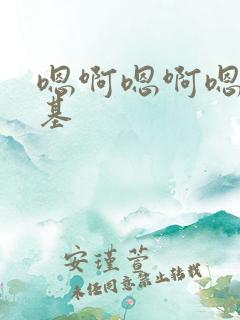 嗯啊嗯啊嗯
基
安瑾萱
未经同意禁止转载